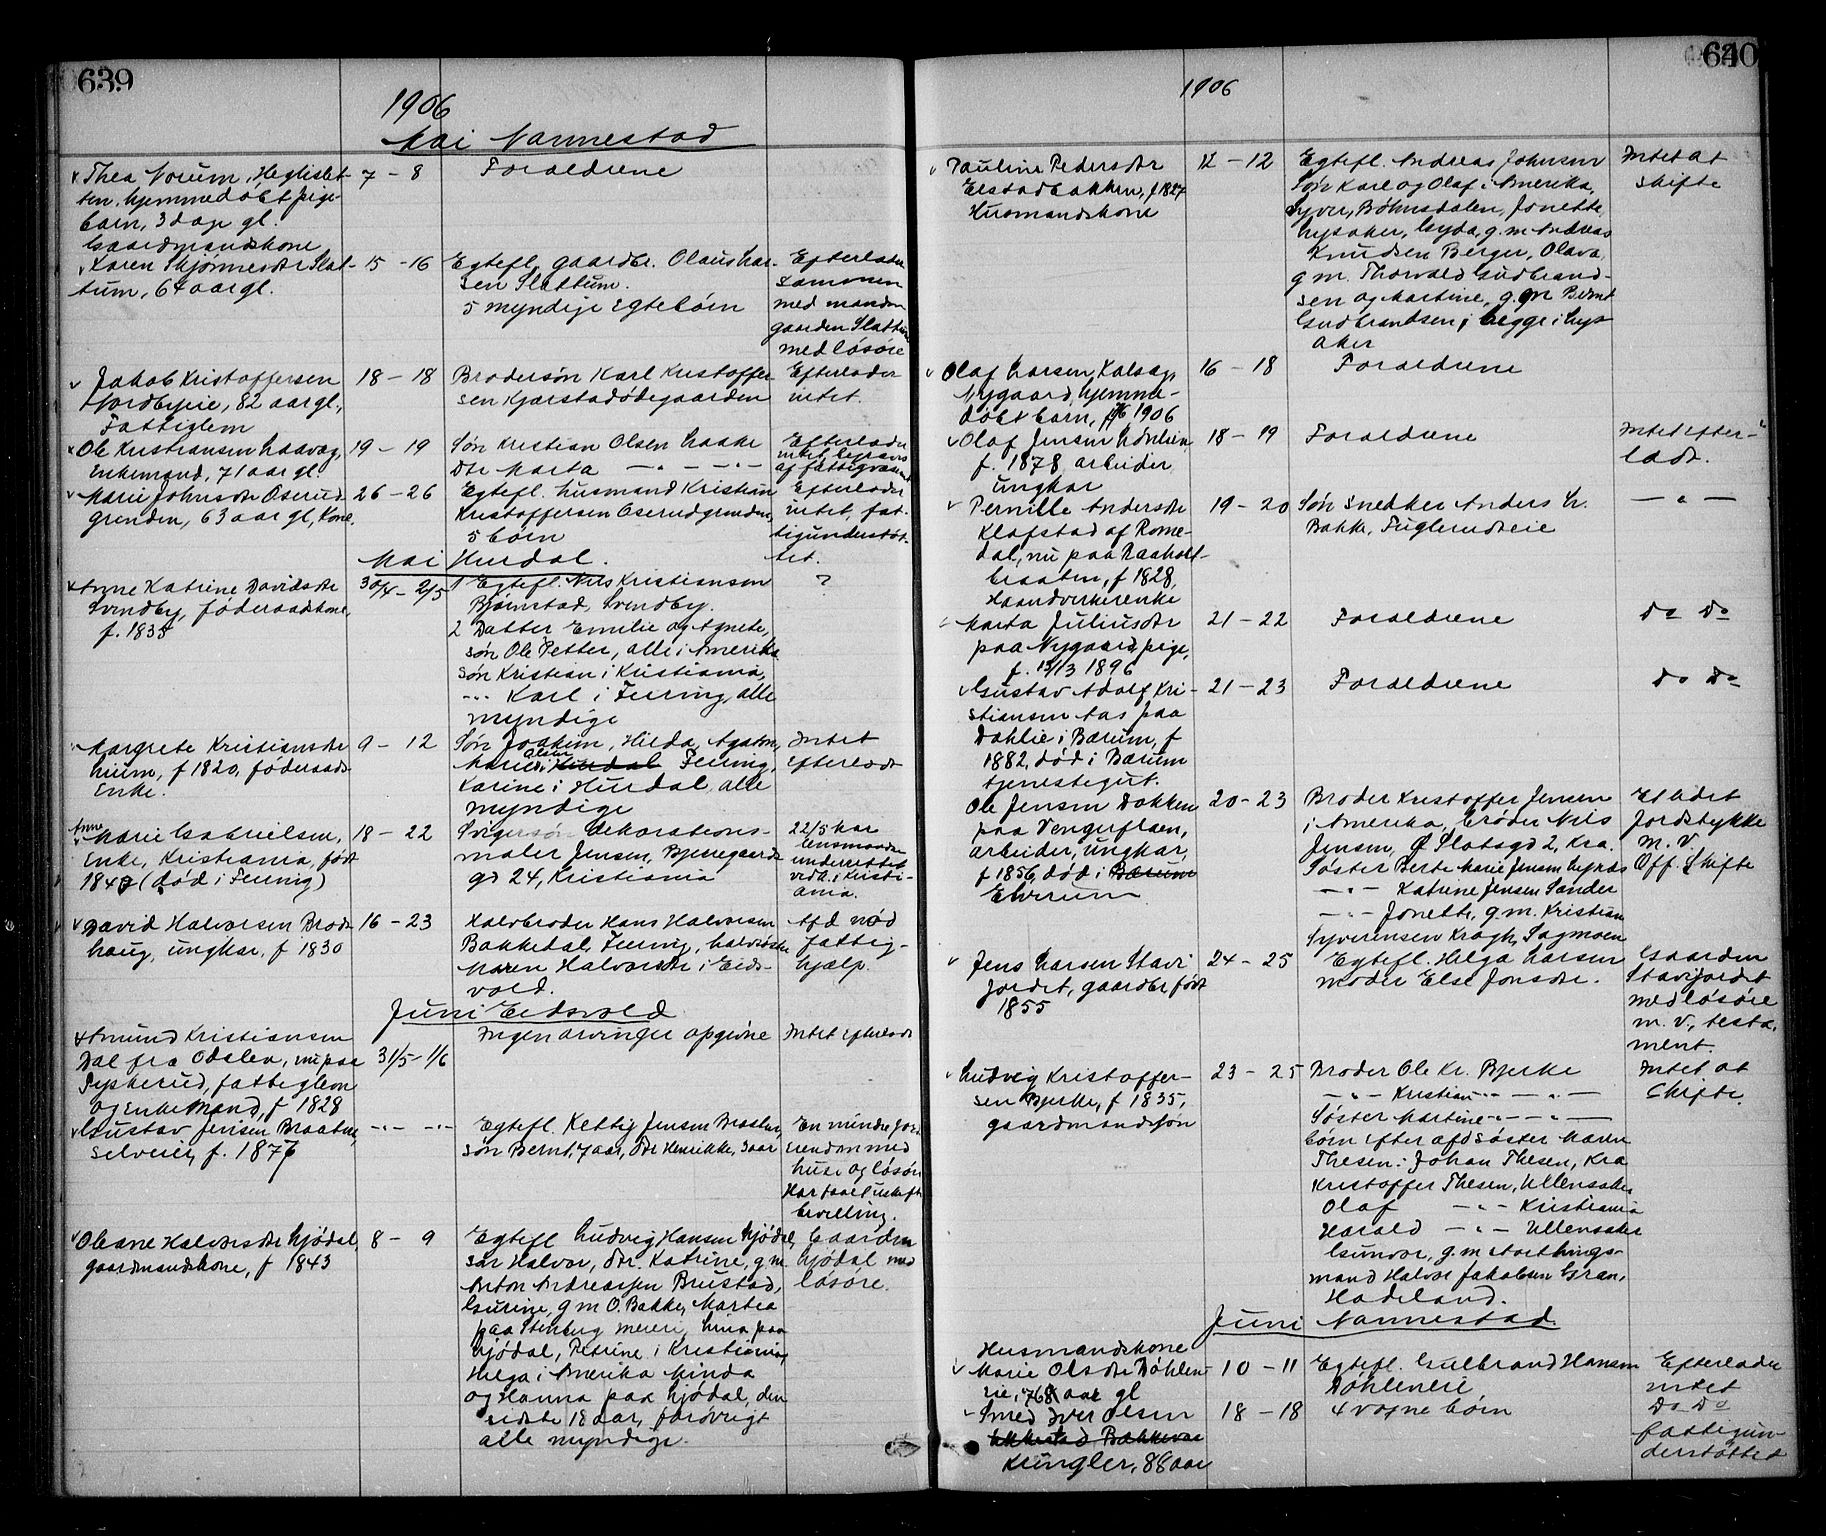 639
1906
Mai Nannestad
Thea Norum, Heglislet-
ten, hjemmedøbt pige-
barn, 3 dage gl.
7 - 8
Forældrene
Gaardmandskone
Karen Skjønnesdtr Slat-
tum, 64 aar gl.
15 - 16
Egtefl. gaardbr. Olaus Lar-
sen Slattum.
5 myndige Egtebörn
Efterlader
sammen
med manden
gaarden Slattum
med løsøre
Jakob Kristoffersen
Nordbyeie, 82 aar gl.,
Fattiglem
18 - 18
Brodersøn Karl Kristoffer-
sen Kjærstadødegaarden
Efterlader
intet.
Ole Kristiansen
Enkemand, 71 aar gl.
19 - 19
Søn Kristian Olsen
Dtr Marta - " - - " -
Efterlader
intet, begraves
af fattigvæsenet
Marie Johnsdtr Oserud-
grenden, 63 aar gl, Kone.
26 - 26
Egtefl. husmand Kristian
Kristoffersen Oserudgrenden,
5 børn
Efterlader
intet, fat-
tigunderstøt-
tet.
Mai Hurdal.
Anne Katrine Davidsdtr
Svendby, føderaadskone,
f. 1835
30/4 - 2/5
1 Egtefl. Nils Kristiansen
Bjørnstad, Svendby.
2 Datter Emilie og Agnete,
søn Ole Petter, alle i Amerika
søn Kristian i Kristiania,
- " - Karl i Feiring, alle
myndige
?
Margrete Kristiansdtr
f 1820, føderaads-
Enke.
9 - 12
Søn Joakim, Hilda, Agaton,
Marie Olsen i Hurdal Feiring,
Karine i Hurdal, alle
myndige
Intet
Efterladt
Anne
Marie Gabrielsen,
Enke, Kristiania, født
1849 (død i Feiring)
18 - 22
Svigersøn Dekorations-
maler Jensen, Bjerregaards
gd 24, Kristiania
22/5 har
lensmanden
underrettet
vedk. i Kristi-
ania.
David Halvorsen Brods-
haug, ungkar, f 1830
16 - 23
Halvbroder Hans Halvorsen
Bakkedal, Feiring, halvsøster
Maren Halvorsdtr i Eids-
vold.
Afd nød
fattig-
hjælp.
Juni Eidsvold
Amund Kristiansen
Dal fra Odalen, nu paa
Fyskerud, fattiglem
og Enkemand, f 1828
31/5 - 1/6
Ingen arvinger opgivne
Intet Efterladt
Gustav Jensen Braaten,
selveier, f. 1876
- " - - " -
Egtefl. Jensen Braaten,
søn Bernt, 7 aar, dtr Henrikke, 3 aar
En mindre jord-
eiendom med
huse og løsøre
Har faaet uskifte
bevilling.
Oleane Halvorsdtr Hjødal,
gaardmandskone, f 1843
8 - 9
Egtefl Ludvig Hansen Hjødal,
søn Halvor, dtr. Katrine, g m
Anton Andreassen Brustad,
Gurine, g m O. Bakke, Martea
paa Stenberg meieri, Lina paa
Hjødal, Petrine i Kristiania,
Helga i Amerika Minda
og Hanna paa Hjødal, den
sidste 18 aar, forøvrigt
alle myndige.
Gaarden
Hjødal med
løsøre.
640
1906
Pauline Pedersdtr
Eistadbakken, f. 1827
Husmandskone
12 - 12
Egtefl. Andreas Johnsen
Søn Karl og Olaf i Amerika,
Syver, Böhnsdalen, Jonette,
Lysaker, Gyda, g. m Andreas
Knudsen Berger, Olava
g m. Thorvald Gudbrand-
sen og Martine, g. m Bernt
Gudbrandsen, begge i Lys-
aker
Intet at
skifte
Olaf Larsen,
Nygaard, hjemme-
døbt barn, 1906
16 - 18
Forældrene
Olaf Jensen
f. 1878, arbeider,
ungkar
18 - 19
Forældrene
Intet efter-
ladt.
Pernille Andersdtr
Klafstad af Rome-
dal, nu paa Raaholt-
braaten, f 1828,
Haandverkerenke
19 - 20
Søn snedker Anders L.
Bakke, Fuglerudeie
- " -
Marta Juliusdtr
paa Nygaard, pige,
f. 13/13 1896
21 - 22
Forældrene
Do Do
Gustav Adolf Kri-
stiansen Aas paa
Dahlie i Bærum, f
1882, død i Bærum
tjenestegut.
21 - 23
Forældrene
Do Do
Ole Jensen Dokken
paa Vengerflaen,
arbeider, ungkar,
f 1856, død i Bærum
Elverum
20 - 23
Broder Kristoffer Jensen
i Amerika, Brøder Nils
Jensen, Ø Slotsgd 2, Kra.
Søster Berte Marie Jensen
- " - Katrine Jensen Sander
- " - Jonette, g. m. Kristian
Syverinsen Kragh, Sagmoen
Et lidet
Jordstykke
m. v.
Off. skifte
Jens Larsen Stavi
jordet, gaardbr, født
1855
24 - 25
Egtefl. Helga Larsen
moder Else Jonsdtr.
Gaarden
Stavijordet
med løsøre
m. v., testa-
ment.
Ludvig Kristoffer-
sen Bjerke, f 1835,
gaardmandssøn
23 - 25
Broder Ole Kr. Bjerke
- " - Kristian - " - - " -
Søster Martine - " - - " -
børn efter afd søster Maren
Thesen: Johan Thesen, Kra
Kristoffer Thesen, Ullensaker
Olaf - " - Kristiania
Harald - " - Ullensaker
Gunvor, g. m storthings-
mand Halvor Jakobsen Gran,
Hadeland.
Intet at
Skifte.
Juni Nannestad.
Husmandskone
Marie Olsdtr Døhlen-
eie, 76 aar gl
10 - 11
Egtefl. Gulbrand Hansen
Døhleneie
Efterlader
intet
Smed Iver Olsen
Bakkerne
Kringler, 86 aar
18 - 18
4 voxne børn
Do Do
fattigun-
derstøttet